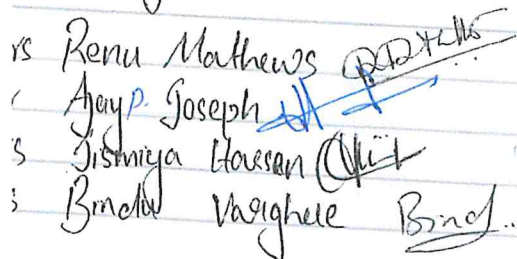 rs Renu Mathews
Ajay P. Joseph
s Jismiya Hassan
Bindu Varghese Bind..